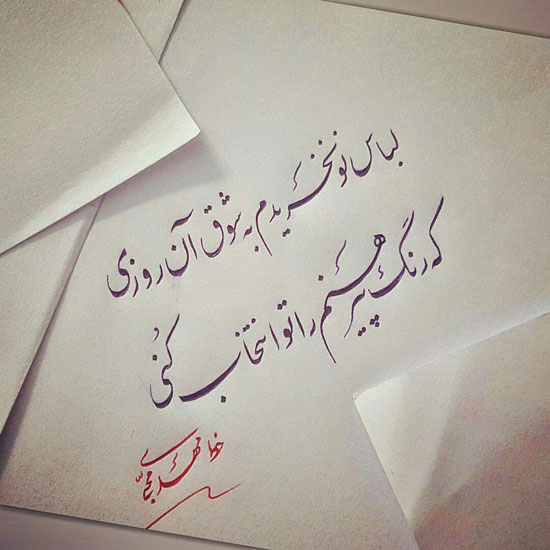 لباس نو نخریدم به شوق آن روزی
که رنگ پیرهنم را تو انتخاب کنی